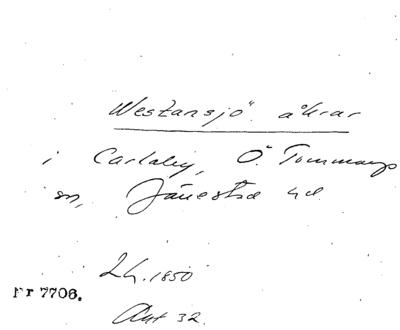 Westansjö åkrar
i Carlaby, Ö. Tommarps
sn, Järrestads hd
2h. 1850
Nr 7706.
Akt 32.